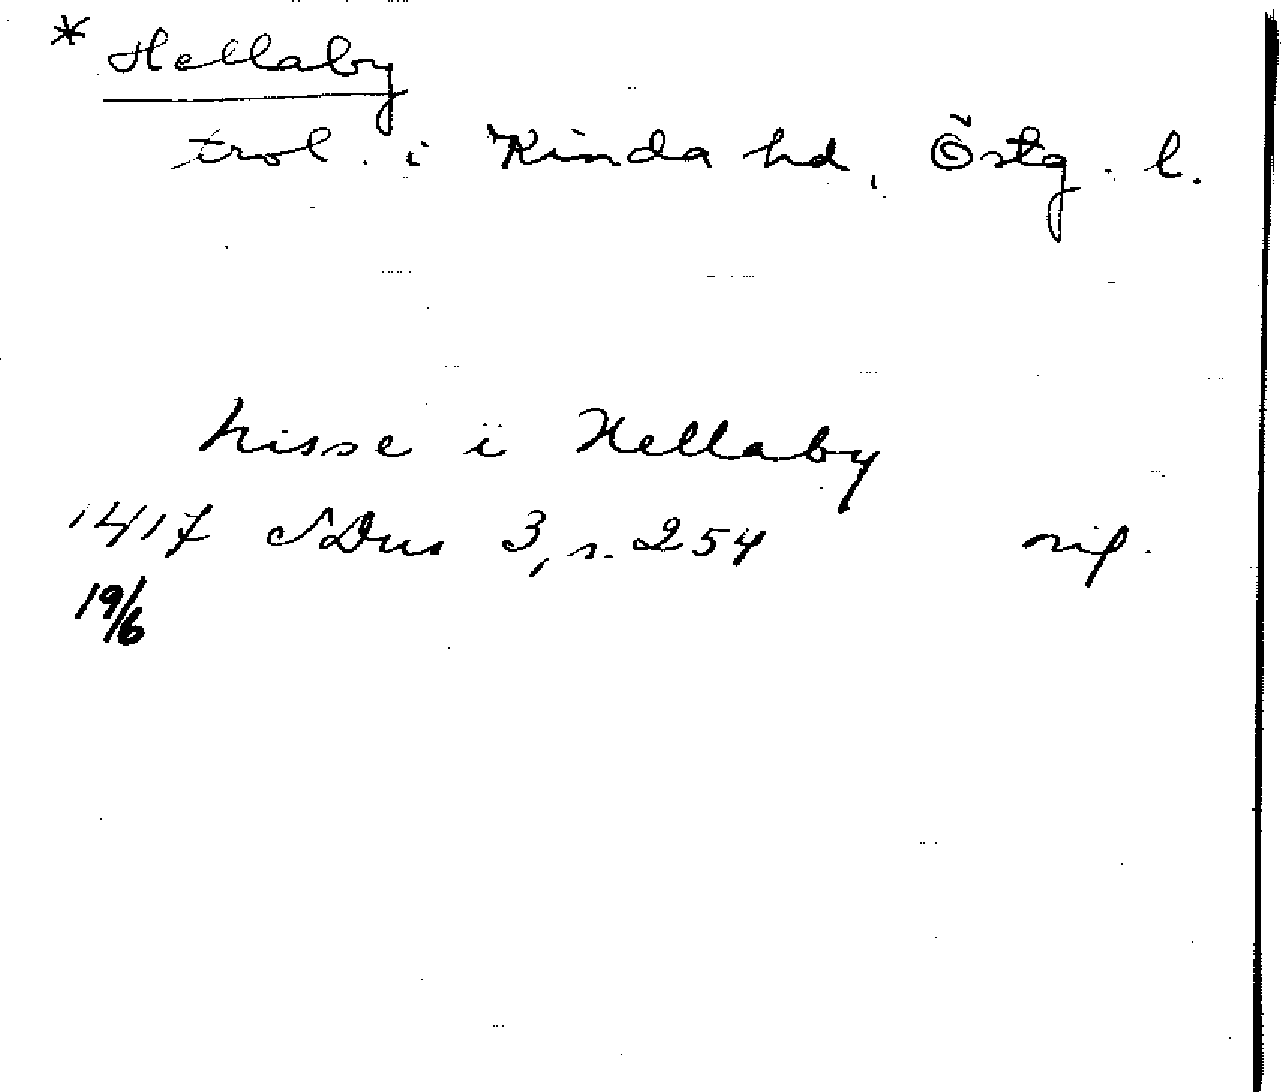 * Hellaby
trol. i Kinda hd, Östg. l.
Nisse i Hellaby
1417 SDns 3, s. 254 orig.
19/6